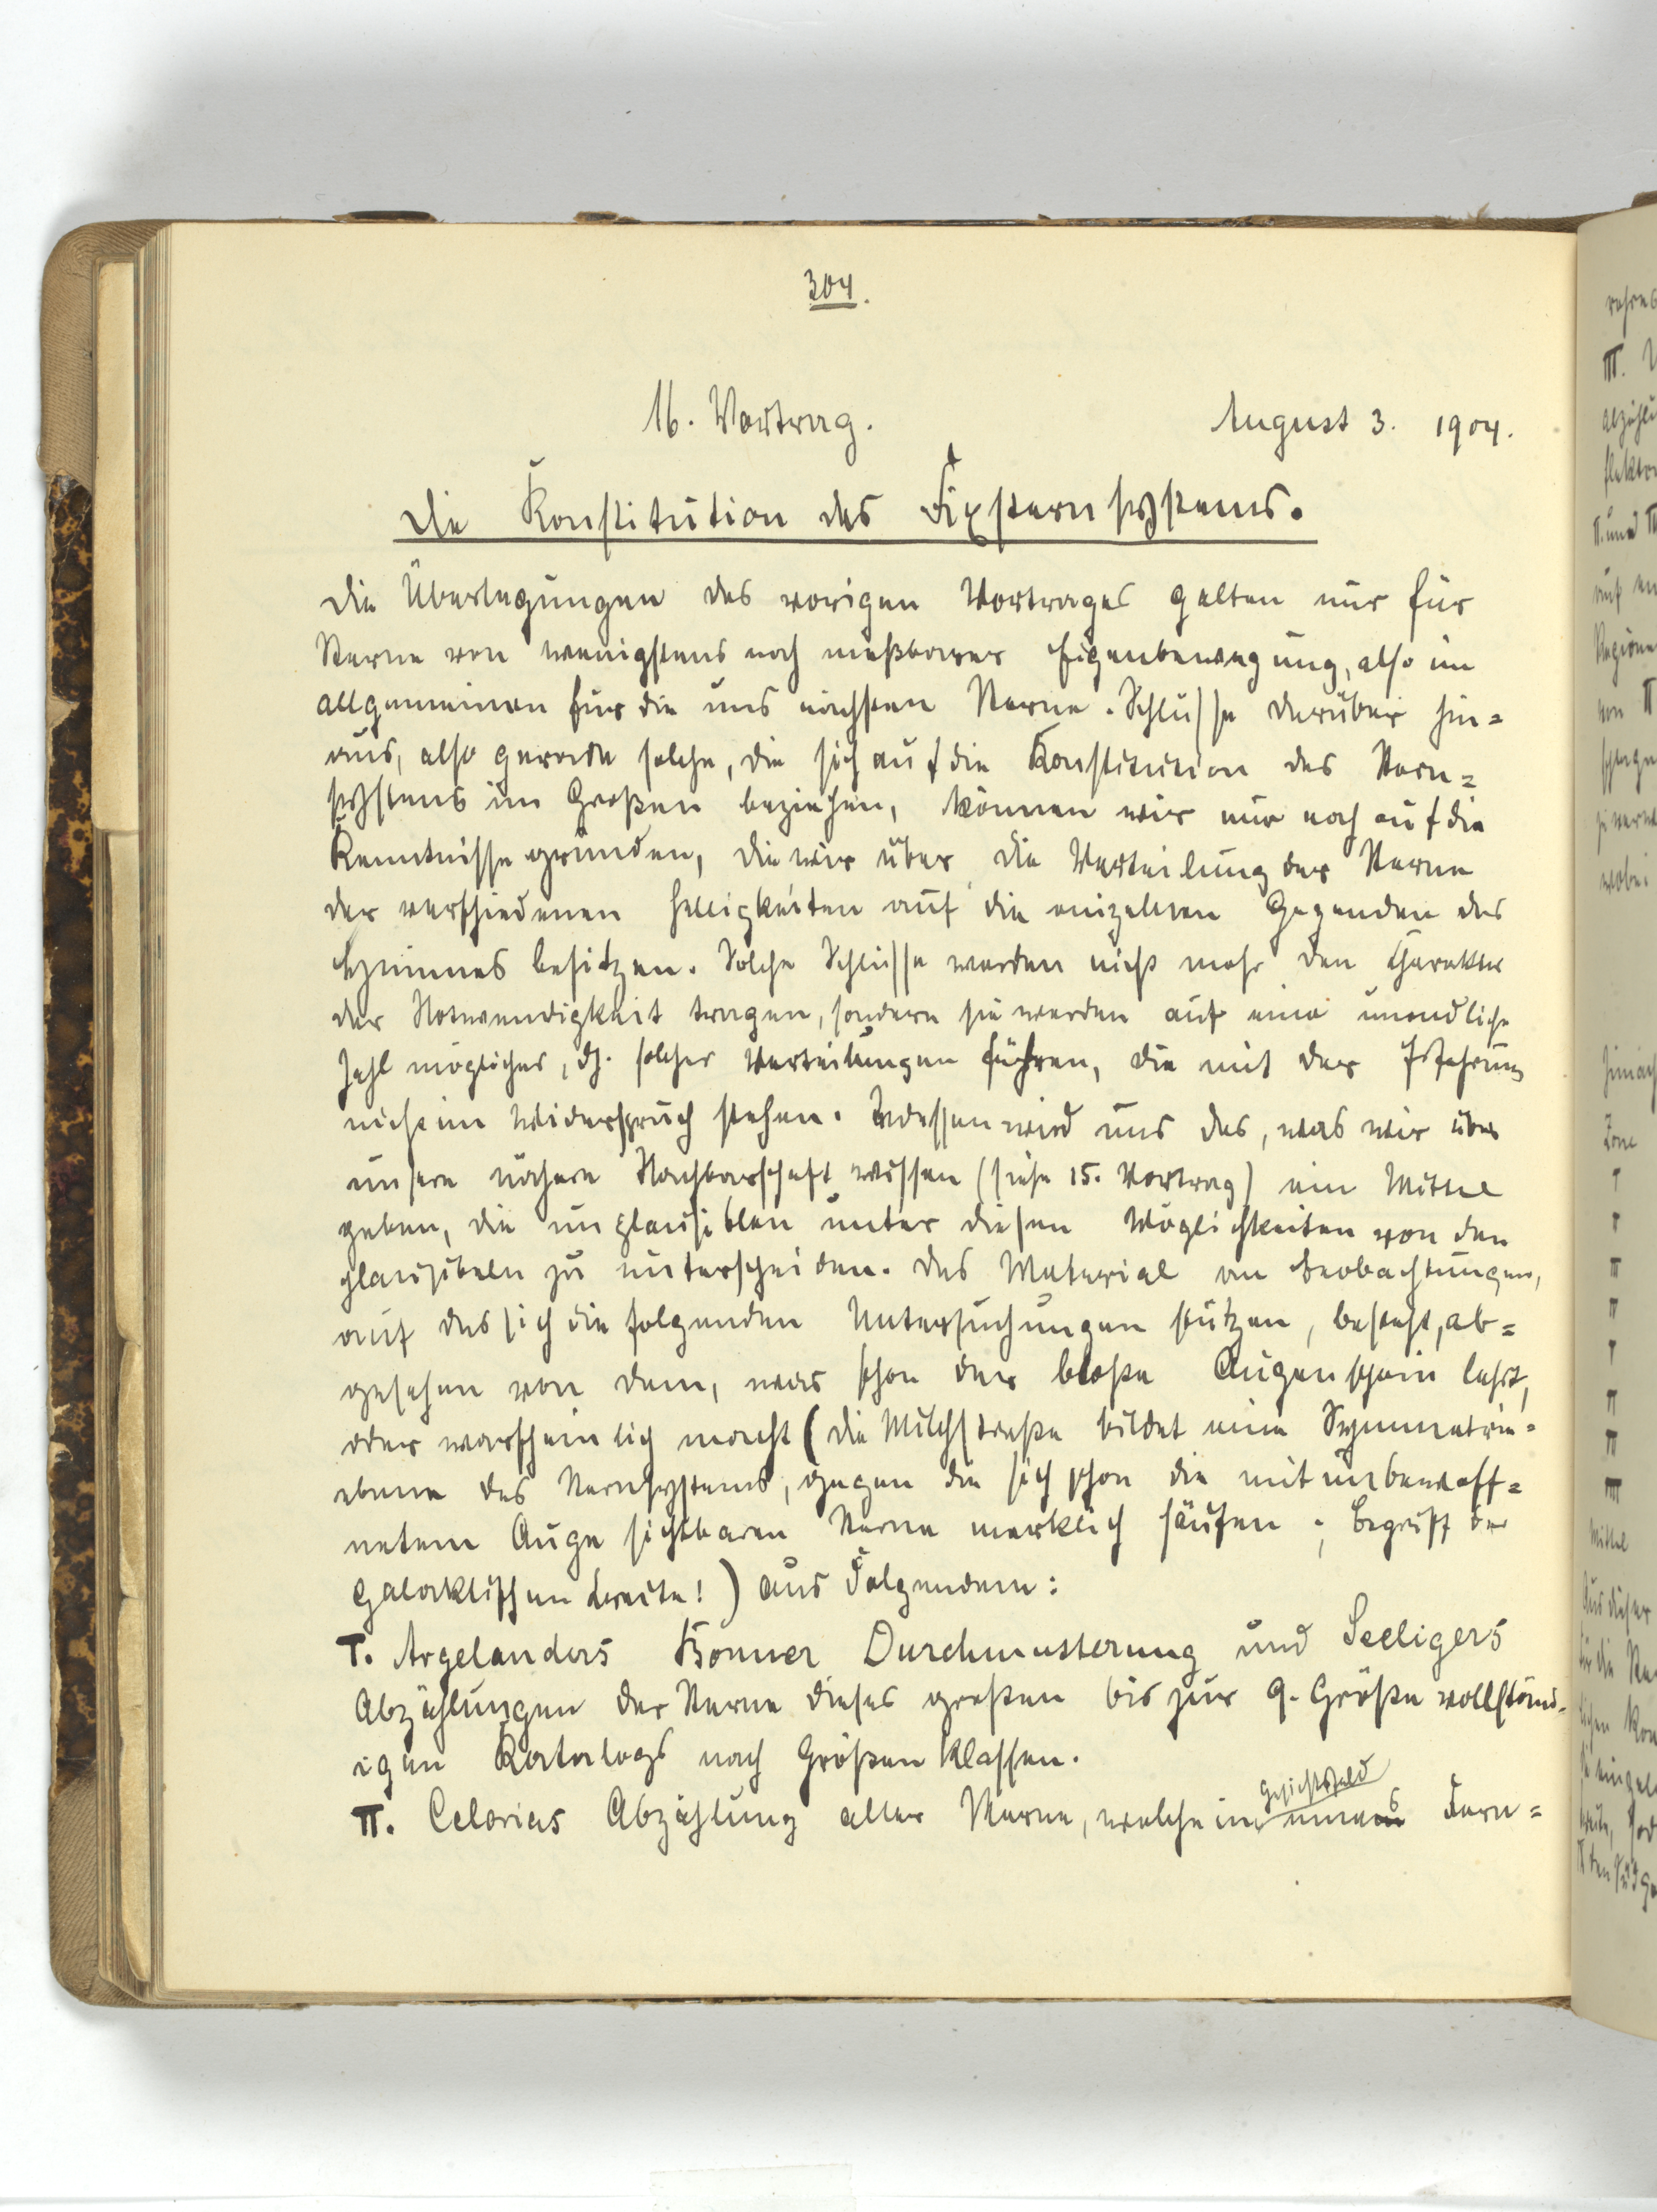 304.
16. Vortrag. August 3. 1904.
Die Konstitution des Fixsternsystems.
Die Überlegungen des vorigen Vortrages gelten nur für
Sterne von wenigstens noch meßbarer Eigenbewegung, also im
allgemeinen für die uns nächsten Sterne. Schlüsse darüber hin=
aus, also gerade solche, die sich auf die Konstitution des Stern=
systems im Großen beziehen, können wir nur noch auf die
Kenntnisse gründen, die wir über die Verteilung der Sterne
der verschiedenen Helligkeiten auf die einzelnen Gegenden des
Himmels besitzen. Solche Schlüsse werden nicht mehr den Charakter
der Notwendigkeit tragen, sondern sie werden auf eine unendliche
Zahl möglicher, dh. solcher Verteilungen führen, die mit der Erfahrung
nicht im Widerspruch stehen. Indessen wird uns das, was wir über
unsere nähere Nachbarschaft wissen (siehe 15. Vortrag) ein Mittel
geben, die unplausiblen unter diesen Möglichkeiten von den
plausibeln zu unterscheiden. Das Material an Beobachtungen,
auf das sich die folgenden Untersuchungen stützen, besteht, ab=
gesehen von dem, was schon der bloße Augenschein lehrt,
oder warscheinlich macht (die Milchstraße bildet eine Symmetrie=
ebene des Sternsystems, gegen die sich schon die mit unbewaff=
netem Auge sichtbaren Sterne merklich häufen; Begriff der
galaktischen Breite!) aus Folgendem:
I. Argelanders Bonner Durchmusterung und Seeligers
Abzählungen der Sterne dieses großen bis zur 9. Größe vollständ=
igen Katalogs nach Größenklassen.
Gesichtsfeld
II. Celorias Abzählung aller Sterne, welche im eines Fern=
rohres
III.
Zone
Mittel
Aus dieser